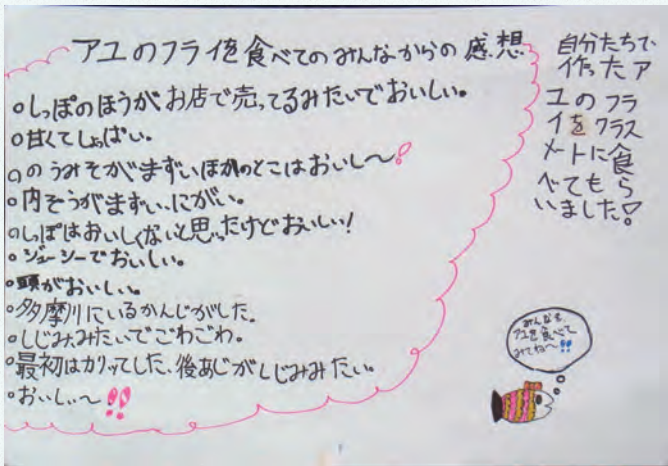 アユのフライを食べてのみんなからの感想
○しっぽのほうがお店で売ってるみたいでおいしい。
○甘くてしょぱい。
○のうみそがまずいほかのとこはおいし〜!
○内ぞうがまずい、にがい。
○しっぽはおいしくないと思ったけどおいしい!
○ジューシーでおいしい。
○頭がおいしい。
○多摩川にいるかんじがした。
○しじみみたいでごわごわ。
○最初はカリッてした、後あじがしじみみたい。
○おいしい〜!!
自分たちで
作ったア
ユのフラ
イをクラス
メートに食
べてもら
いました!
みんなも、
アユを食べて
みてね〜!!